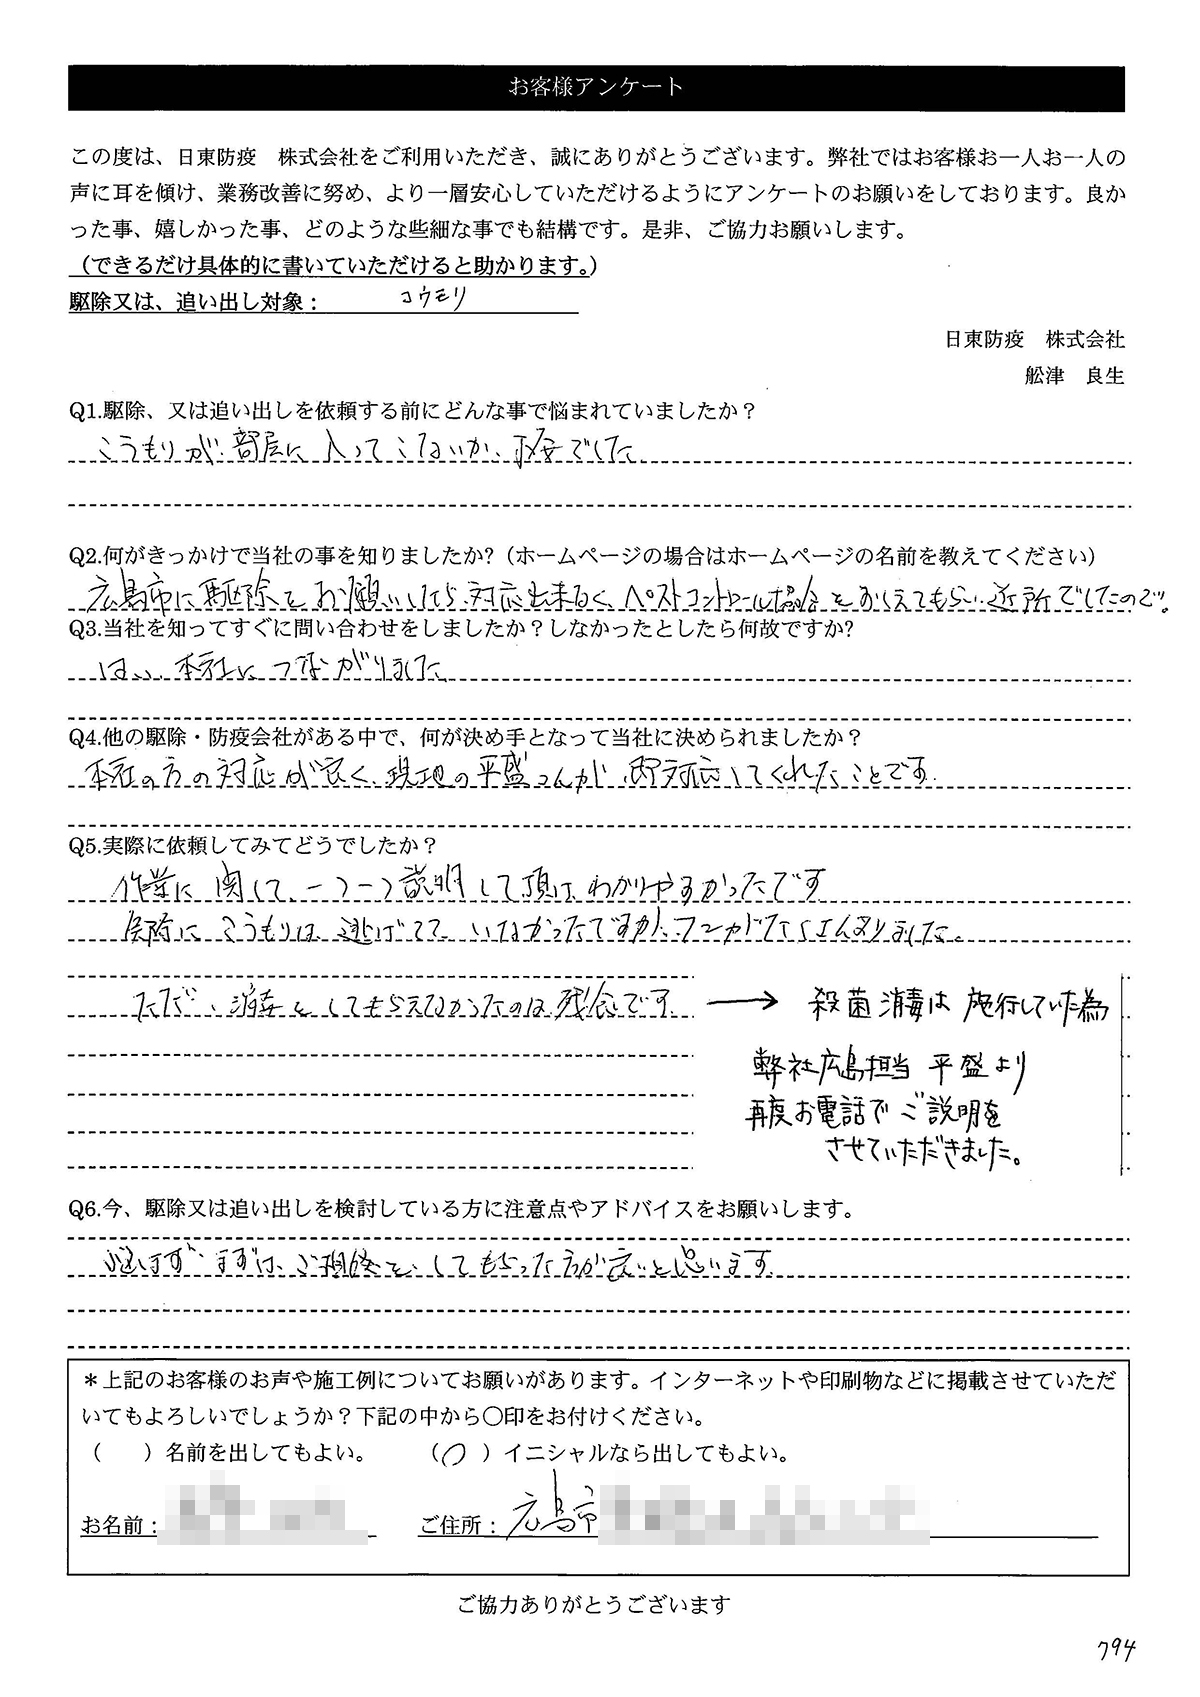 お客様アンケート
この度は、日東防疫　株式会社をご利用いただき、誠にありがとうございます。弊社ではお客様お一人お一人の
声に耳を傾け、業務改善に努め、より一層安心していただけるようにアンケートのお願いをしております。良か
った事、嬉しかった事、どのような些細な事でも結構です。是非、ご協力お願いします。
（できるだけ具体的に書いていただけると助かります。）
駆除又は、追い出し対象： コウモリ
日東防疫　株式会社
舩津　良生
Q1.駆除、又は追い出しを依頼する前にどんな事で悩まれていましたか？
こうもりが、部屋に入ってこないか、不安でした
Q2.何がきっかけで当社の事を知りましたか?（ホームページの場合はホームページの名前を教えてください）
広島市に駆除をお願いしたら、対応出来なく、ペストコントロール協会をおしえてもらい近所でしたので。
Q3.当社を知ってすぐに問い合わせをしましたか？しなかったとしたら何故ですか?
はい、本社につながりました
Q4.他の駆除・防疫会社がある中で、何が決め手となって当社に決められましたか？
本社の方の対応が良く、現地の平盛さんが、即対応してくれたことです
Q5.実際に依頼してみてどうでしたか？
作業に関して、一つ一つ説明して頂け、わかりやすかったです
実際にこうもりは、逃げてて、いなかったですが、フンがたくさんありました。
ただ、消毒をしてもらえなかったのは、残念です → 殺菌消毒は 施行していた為
弊社広島担当 平盛より
再度お電話でご説明を
させていただきました。
Q6.今、駆除又は追い出しを検討している方に注意点やアドバイスをお願いします。
悩まず、まずは、ご相談を、してもらった方が良いと思います
＊上記のお客様のお声や施工例についてお願いがあります。インターネットや印刷物などに掲載させていただ
いてもよろしいでしょうか？下記の中から〇印をお付けください。
（　　）名前を出してもよい。　　（〇）イニシャルなら出してもよい。
お名前： ご住所： 広島市
ご協力ありがとうございます
794